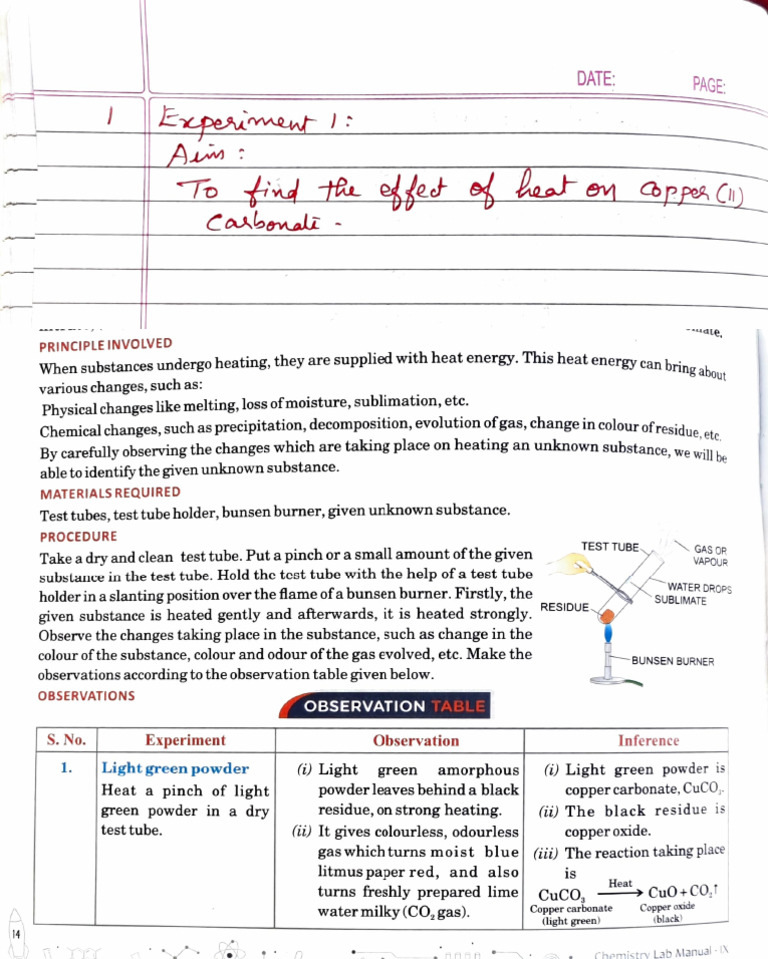 DATE:
PAGE:
1 Experiment 1:
Aim :
To find the effect of heat on copper (II)
Carbonate -
PRINCIPLE INVOLVED
When substances undergo heating, they are supplied with heat energy. This heat energy can bring about
various changes, such as:
Physical changes like melting, loss of moisture, sublimation, etc.
Chemical changes, such as precipitation, decomposition, evolution of gas, change in colour of residue, etc.
By carefully observing the changes which are taking place on heating an unknown substance, we will be
able to identify the given unknown substance.
MATERIALS REQUIRED
Test tubes, test tube holder, bunsen burner, given unknown substance.
PROCEDURE
Take a dry and clean test tube. Put a pinch or a small amount of the given
substance in the test tube. Hold the test tube with the help of a test tube
holder in a slanting position over the flame of a bunsen burner. Firstly, the
given substance is heated gently and afterwards, it is heated strongly.
Observe the changes taking place in the substance, such as change in the
colour of the substance, colour and odour of the gas evolved, etc. Make the
observations according to the observation table given below.
TEST TUBE
GAS OR
VAPOUR
WATER DROPS
SUBLIMATE
RESIDUE
BUNSEN BURNER
OBSERVATIONS
OBSERVATION TABLE
S. No. Experiment Observation Inference
1. Light green powder
Heat a pinch of light
green powder in a dry
test tube.
(i) Light green amorphous
powder leaves behind a black
residue, on strong heating.
(ii) It gives colourless, odourless
gas which turns moist blue
litmus paper red, and also
turns freshly prepared lime
water milky (CO₂ gas).
(i) Light green powder is
copper carbonate, CuCO₃.
(ii) The black residue is
copper oxide.
(iii) The reaction taking place
is
CuCO₃ Heat → CuO + CO₂↑
Copper carbonate Copper oxide
(light green) (black)
14
Chemistry Lab Manual - IX